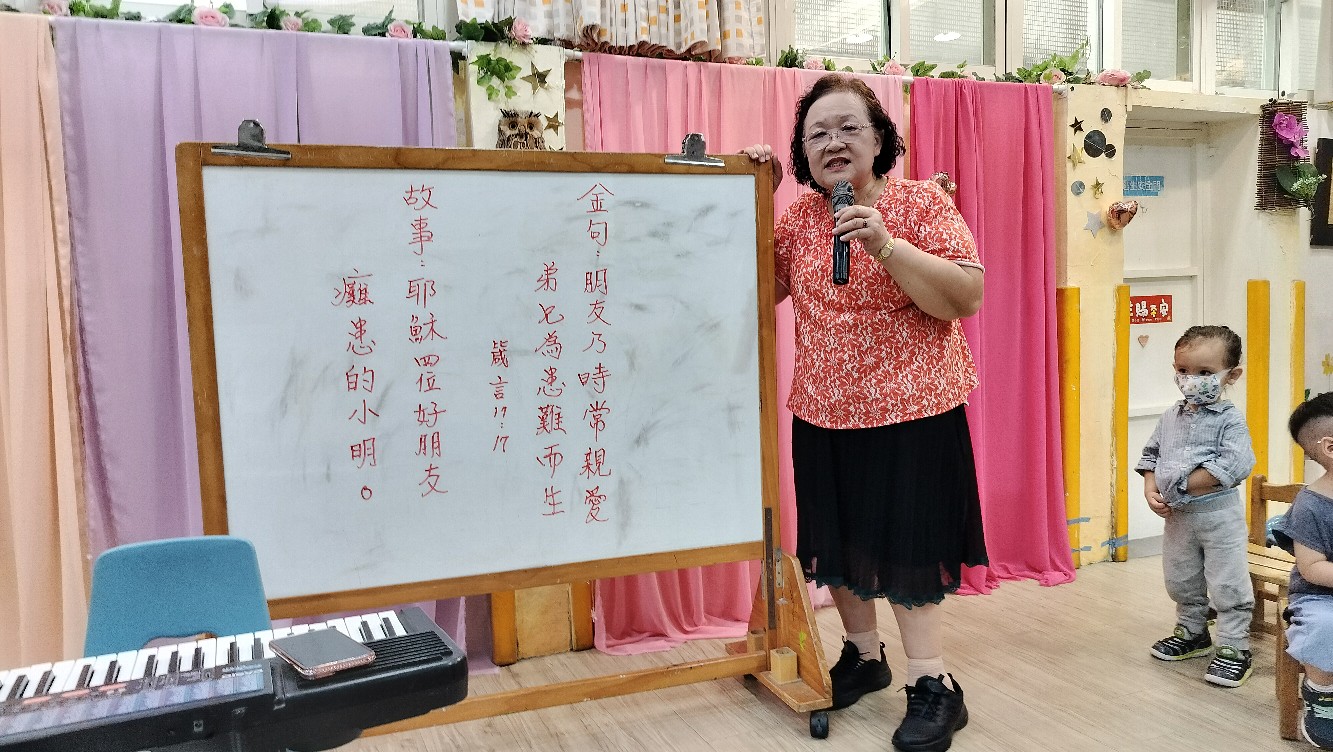 金句：朋友乃時常親愛
弟兄為患難而生
箴言17:17
故事：耶穌四位好朋友
癱患的小明。
主賜平安